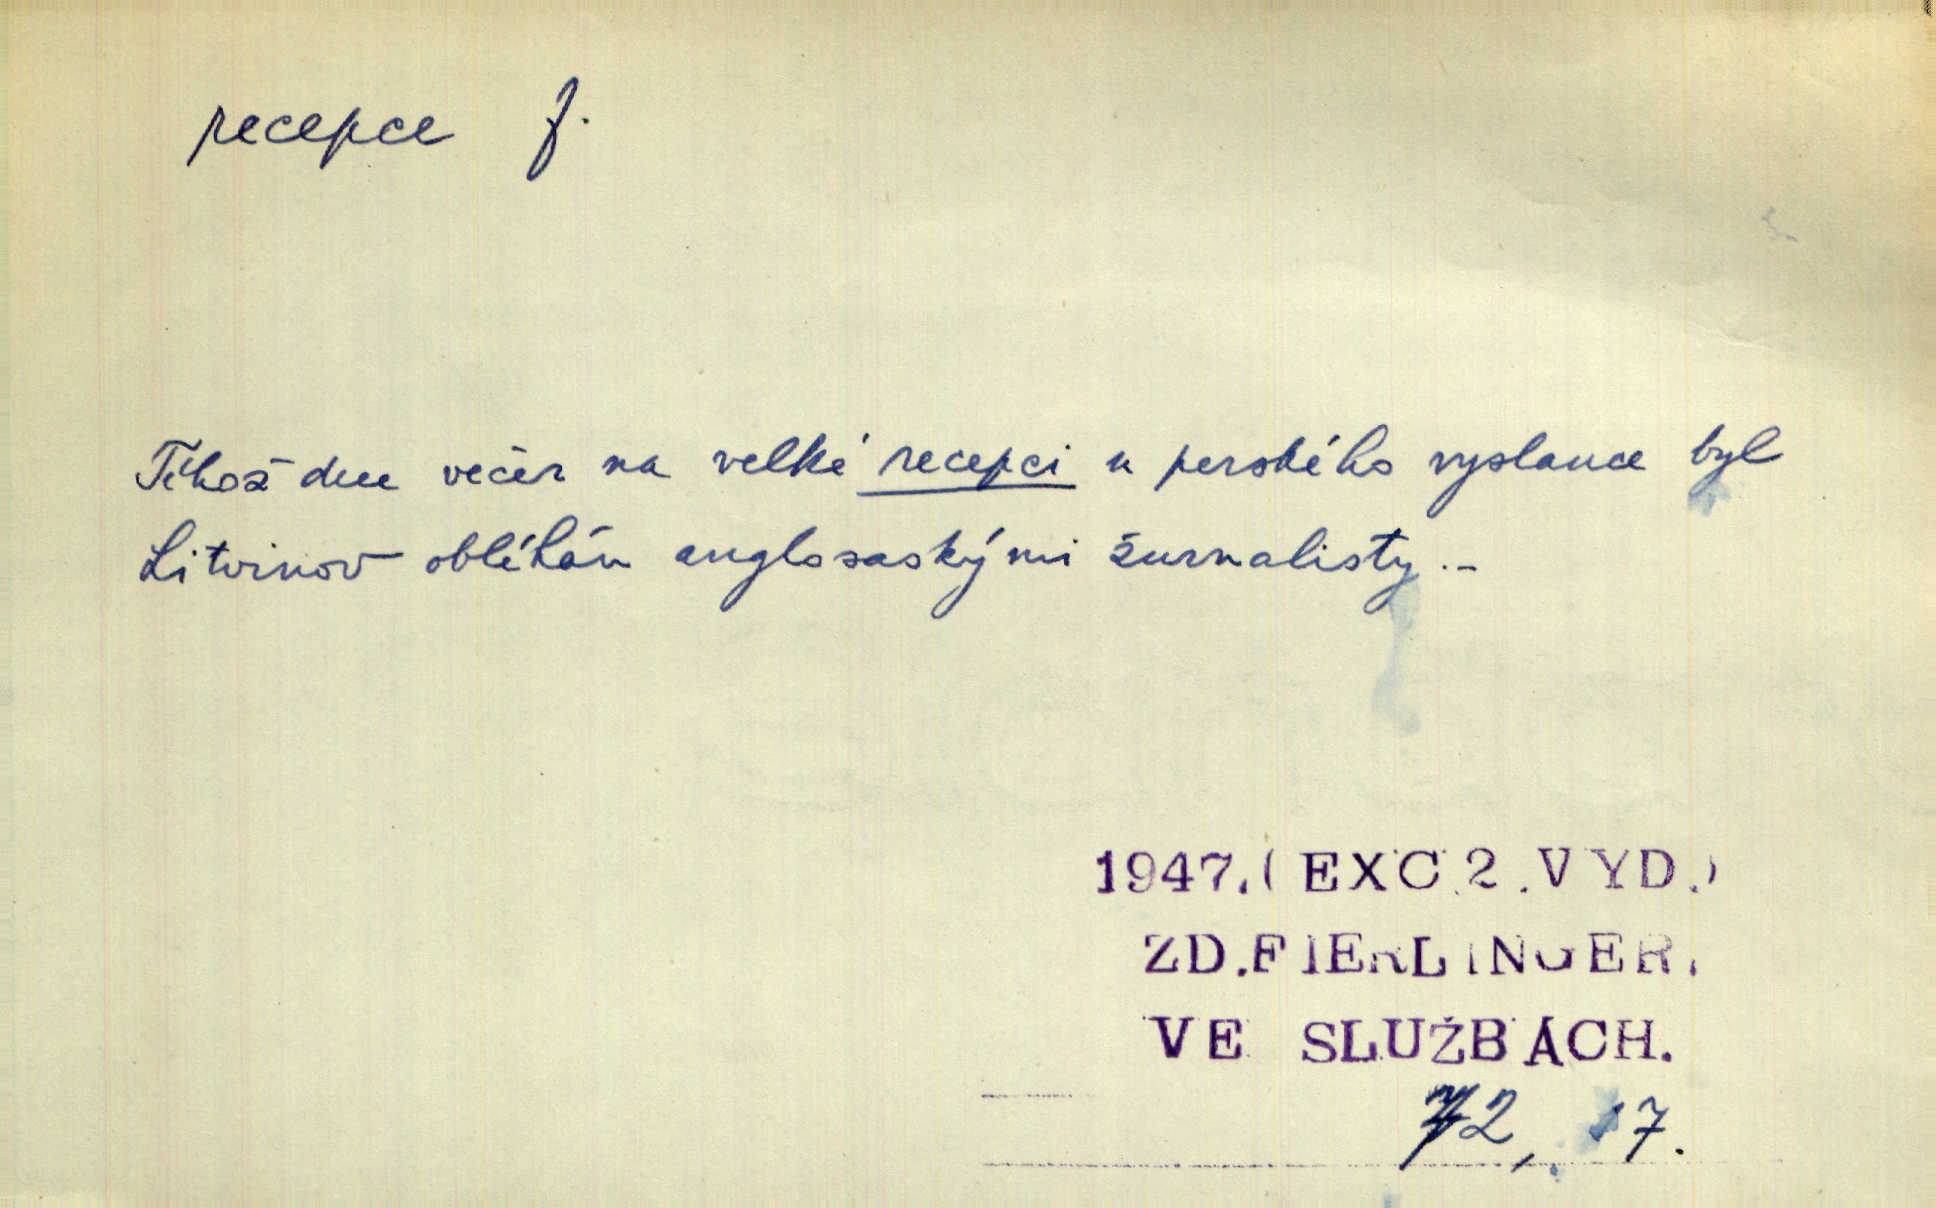 recepce f.
Téhož dne večer na velké recepci u perského vyslance byl
Litvinov obléhán anglosaskými žurnalisty.-
1947.(EXC.2.VYD.)
ZD.FIERLINGER.
VE SLUŽBÁCH.
72, 17.